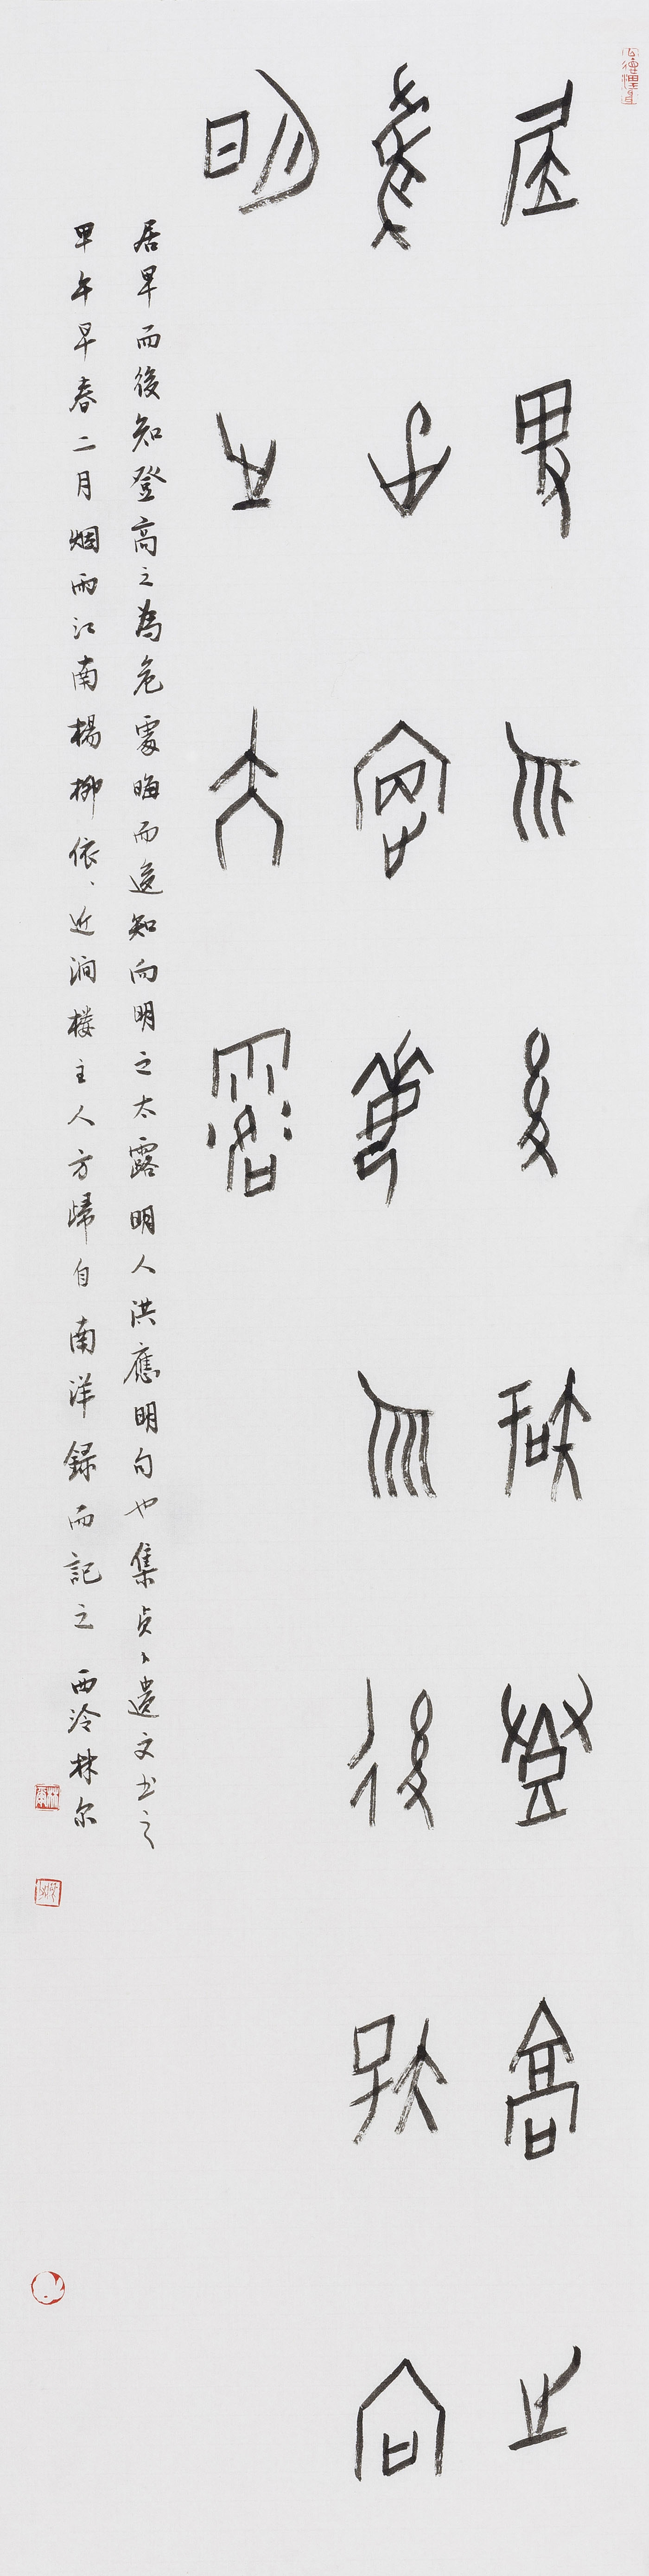 居卑而後知登高之
為危處晦而後知向
明之太露
居卑而後知登高之為危處晦而後知向明之太露明人洪應明句也集貞卜遺文書之
甲午早春二月烟雨江南楊柳依、近澗樓主人方歸自南洋錄而記之 西泠林尔